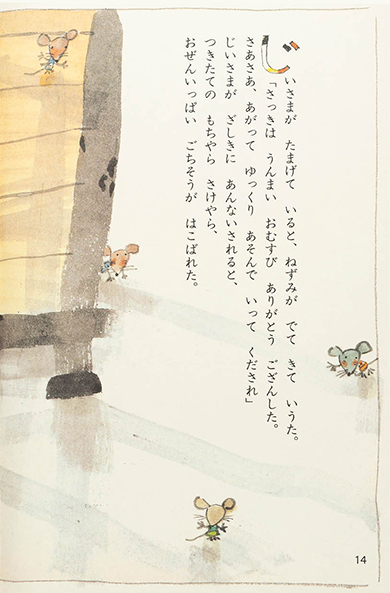 じいさまが　たまげて　いると、ねずみが　でて　きて　いうた。
「さっきは　うんまい　おむすび　ありがとう　ござんした。
さあさあ、あがって　ゆっくり　あそんで　いって　くだされ」
じいさまが　ざしきに　あんないされると、
つきたての　もちやら　さけやら、
おぜんいっぱい　ごちそうが　はこばれた。
14